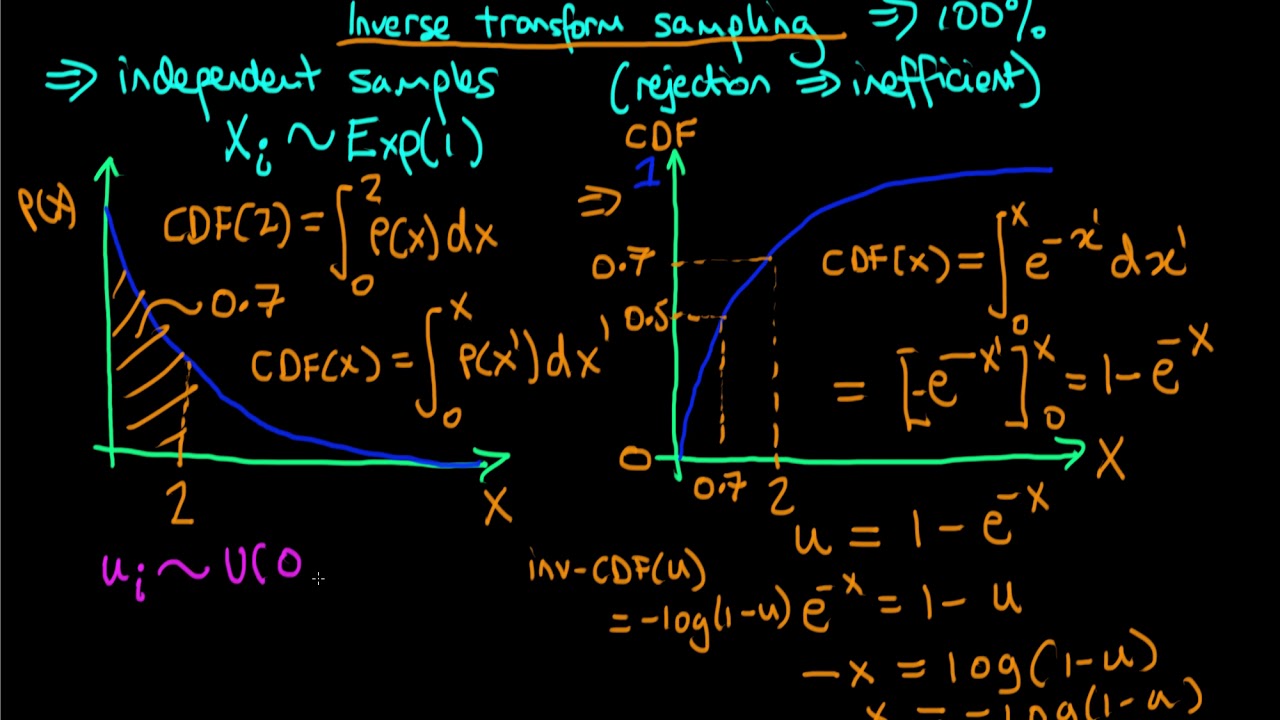 Inverse transform sampling ⇒ 100%
⇒ independent samples
(rejection ⇒ inefficient)
Xᵢ ~ Exp(1)
CDF
1
P(x)
CDF(2) = ∫₀² P(x) dx
⇒
0.7
CDF(x) = ∫₀ˣ e^(-x') dx'
0.7
0.5
CDF(x) = ∫₀ˣ P(x') dx'
= [-e^(-x')]₀ˣ = 1 - e^(-x)
0
0.7
2
X
2
X
u = 1 - e^(-x)
uᵢ ~ U(0
inv-CDF(u)
= -log(1-u)
e^(-x) = 1 - u
-x = log(1-u)
x = -log(1-u)